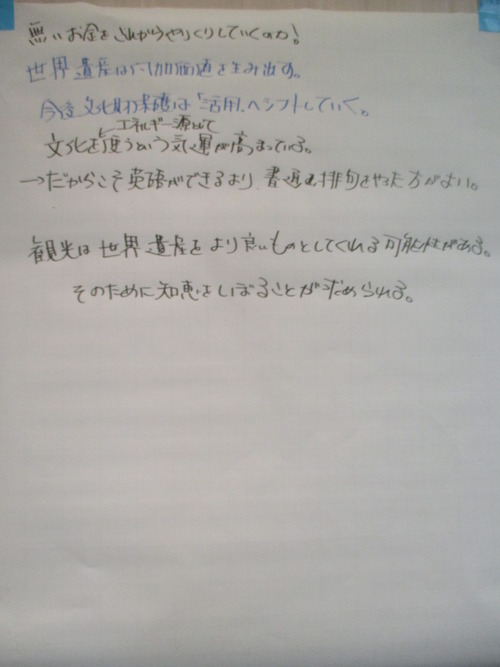 無いお金をこれからやりくりしていくのか!
世界遺産は付加価値を生み出す。
今後文化財保護は「活用」へシフトしていく。
エネルギー源として
文化を使うという気運が高まっている。
→だからこそ英語ができるより、書道や俳句をやった方がよい。
観光は世界遺産をより良いものとしてくれる可能性がある。
そのために知恵をしぼることが求められる。